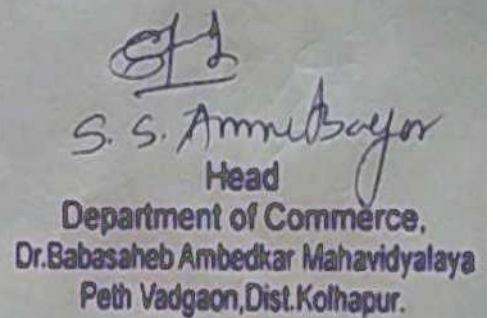 S. S. Annu Bagor
Head
Department of Commerce,
Dr.Babasaheb Ambedkar Mahavidyalaya
Peth Vadgaon,Dist.Kolhapur.